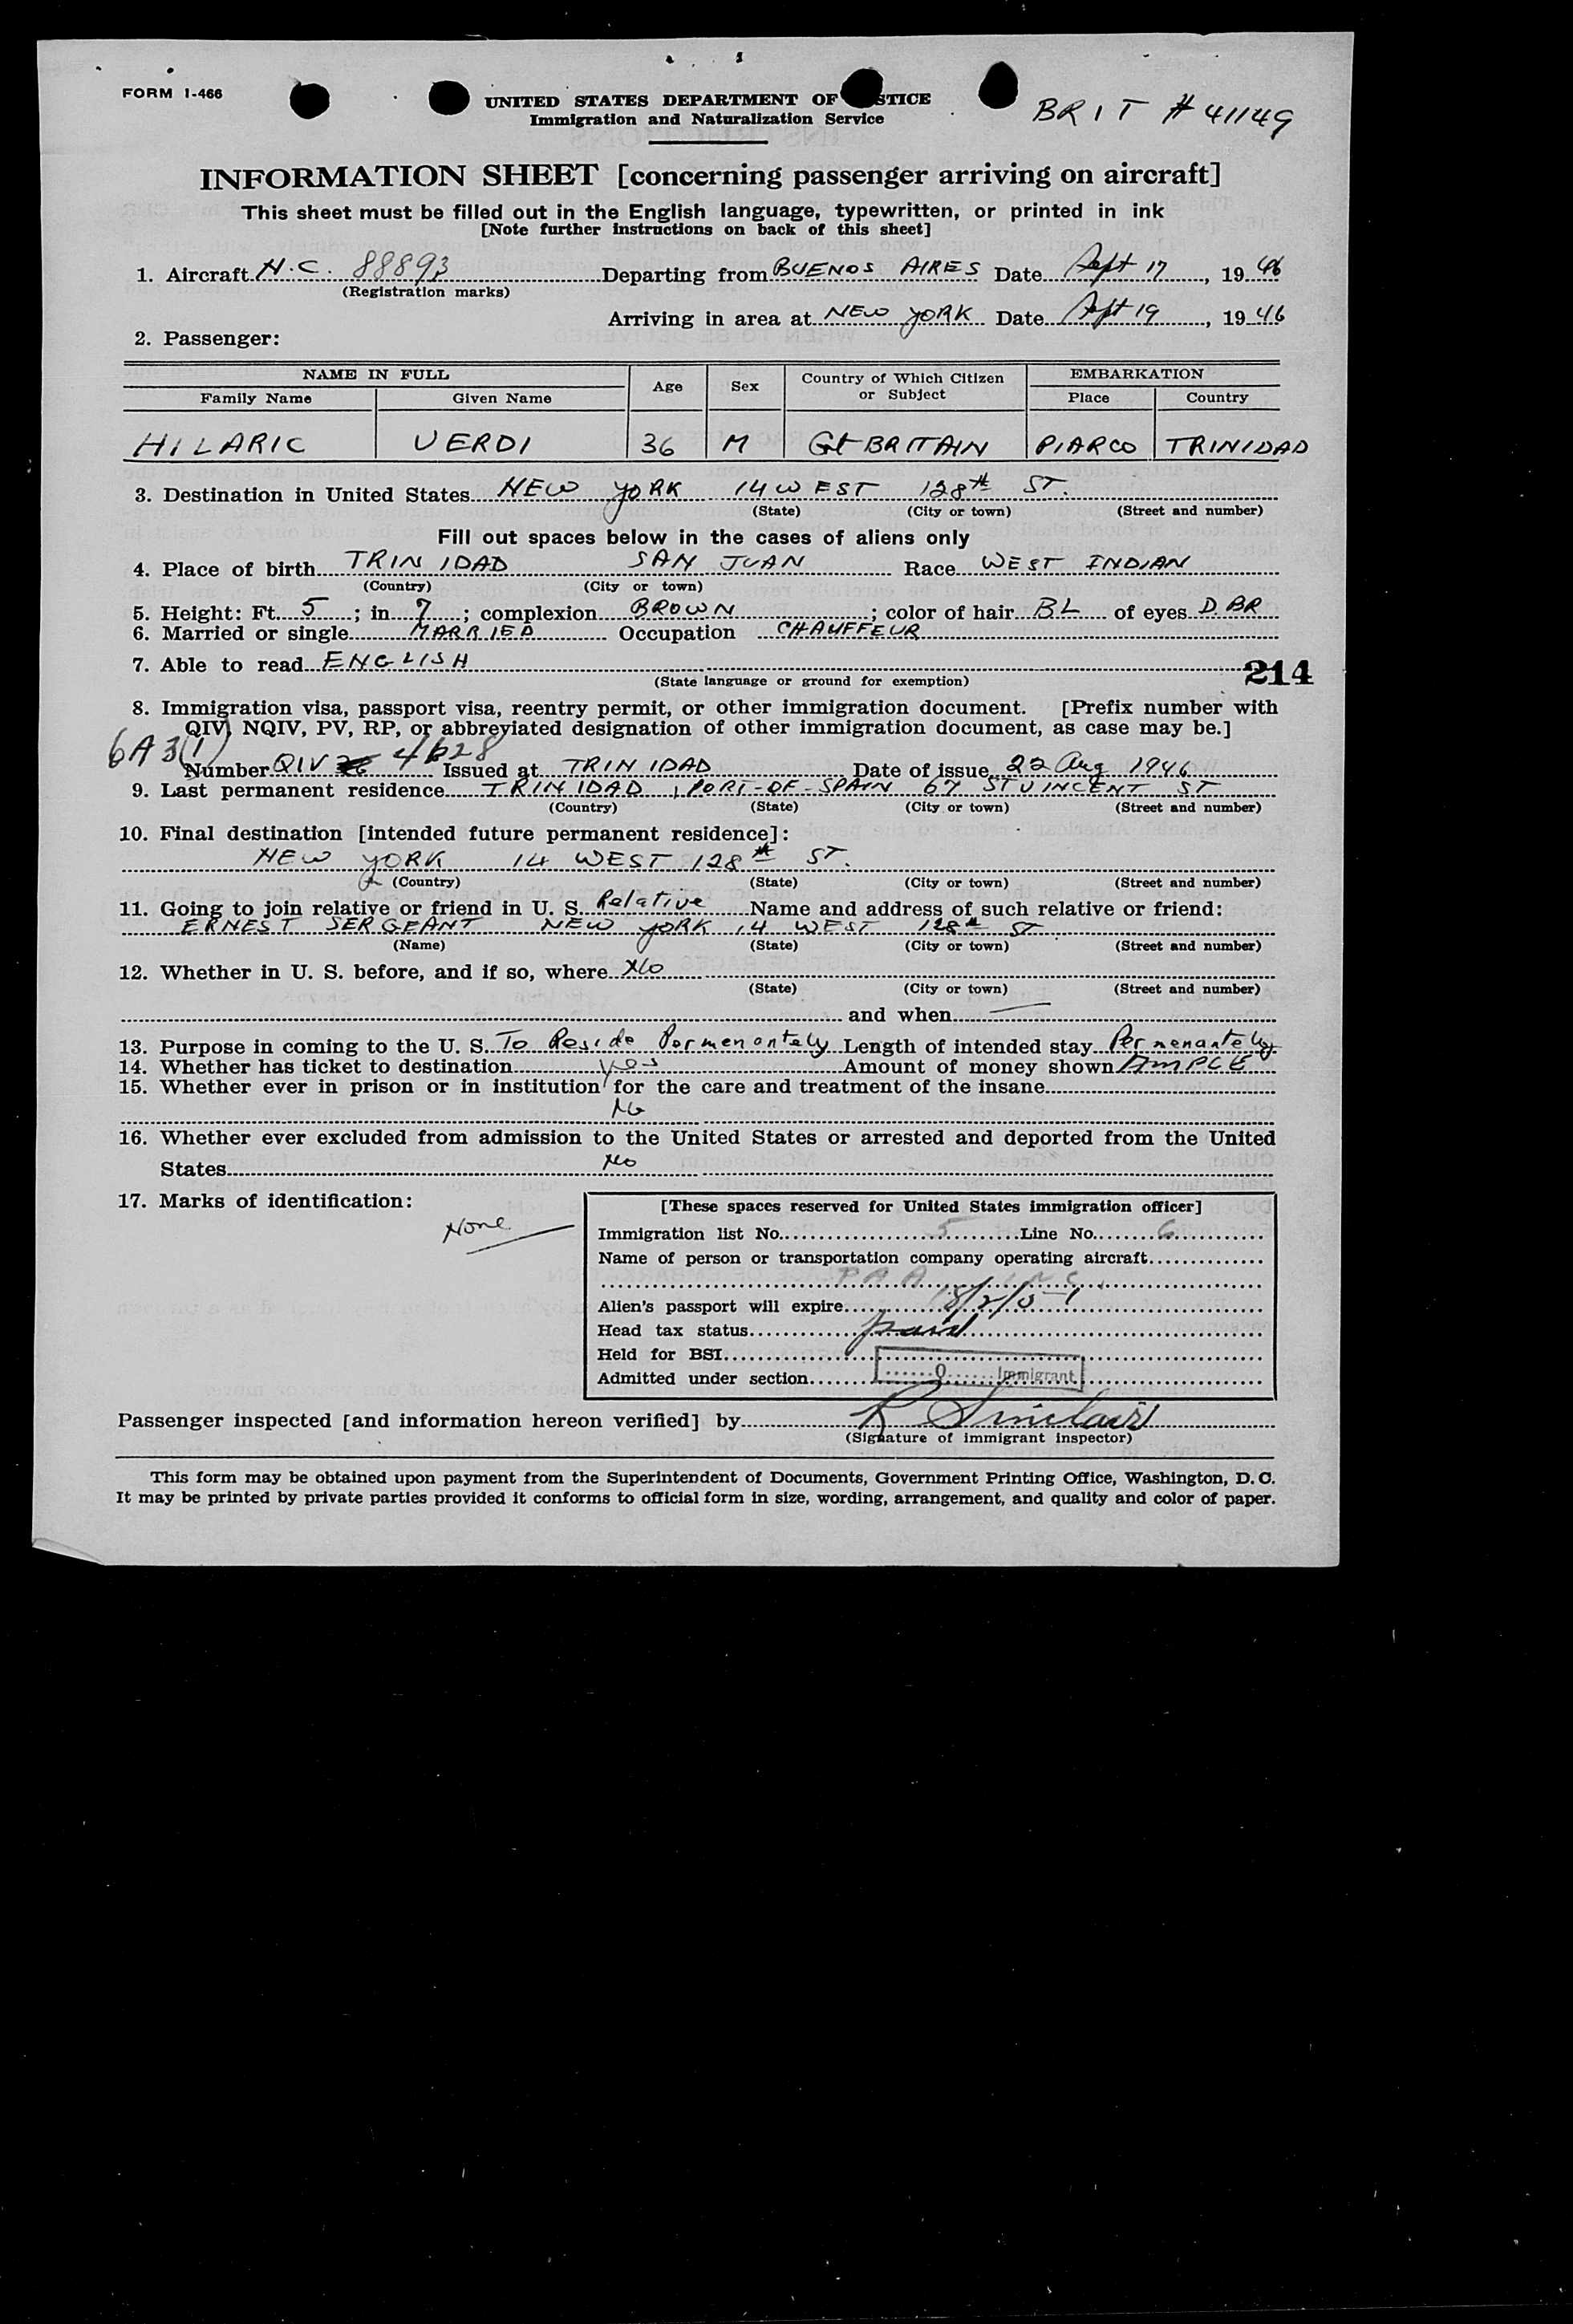 FORM I-466
UNITED STATES DEPARTMENT OF STICE
BRIT # 41149
Immigration and Naturalization Service
INFORMATION SHEET [concerning passenger arriving on aircraft]
This sheet must be filled out in the English language, typewritten, or printed in ink
[Note further instructions on back of this sheet]
1. Aircraft N.C. 88893 Departing from BUENOS AIRES Date Sept 17, 19 46
(Registration marks)
Arriving in area at NEW YORK Date Sept 19, 19 46
2. Passenger:
NAME IN FULL Age Sex Country of Which Citizen or Subject EMBARKATION
Family Name Given Name Place Country
HILARIC VERDI 36 M Gt BRITAIN PIARCO TRINIDAD
3. Destination in United States NEW YORK 14 WEST 128th ST.
(State) (City or town) (Street and number)
Fill out spaces below in the cases of aliens only
4. Place of birth TRINIDAD SAN JUAN Race WEST INDIAN
(Country) (City or town)
5. Height: Ft. 5; in 7; complexion BROWN; color of hair BL of eyes D. BR
6. Married or single MARRIED Occupation CHAUFFEUR
7. Able to read ENGLISH
(State language or ground for exemption) 214
8. Immigration visa, passport visa, reentry permit, or other immigration document. [Prefix number with
QIV, NQIV, PV, RP, or abbreviated designation of other immigration document, as case may be.]
6A3(1)
Number QIV 4628 Issued at TRINIDAD Date of issue 22 Aug 1946
9. Last permanent residence TRINIDAD, PORT-OF-SPAIN 67 ST VINCENT ST
(Country) (State) (City or town) (Street and number)
10. Final destination [intended future permanent residence]:
NEW YORK 14 WEST 128th ST.
(Country) (State) (City or town) (Street and number)
11. Going to join relative or friend in U. S. Relative Name and address of such relative or friend:
ERNEST SERGEANT NEW YORK 14 WEST 128th ST
(Name) (State) (City or town) (Street and number)
12. Whether in U. S. before, and if so, where No
(State) (City or town) (Street and number)
and when —
13. Purpose in coming to the U. S. To Reside Permenantely Length of intended stay Permenantely
14. Whether has ticket to destination yes Amount of money shown AMPLE
15. Whether ever in prison or in institution for the care and treatment of the insane
No
16. Whether ever excluded from admission to the United States or arrested and deported from the United
States No
17. Marks of identification:
None
[These spaces reserved for United States immigration officer]
Immigration list No. 5 Line No. 6
Name of person or transportation company operating aircraft
PAA INC.
Alien's passport will expire 8/2/51
Head tax status paid
Held for BSI
Admitted under section Q Immigrant
Passenger inspected [and information hereon verified] by R Sinclair
(Signature of immigrant inspector)
This form may be obtained upon payment from the Superintendent of Documents, Government Printing Office, Washington, D. C.
It may be printed by private parties provided it conforms to official form in size, wording, arrangement, and quality and color of paper.